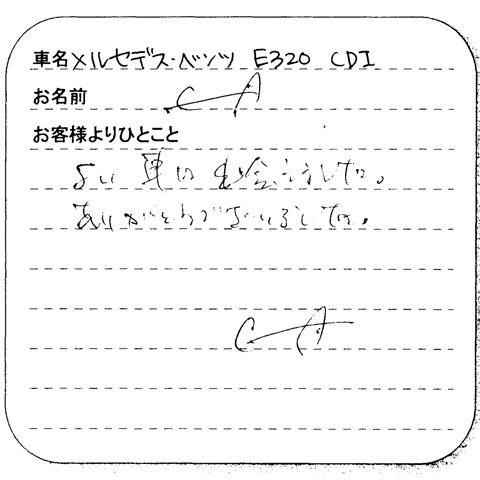 車名 メルセデス・ベンツ E320 CDI
お名前 C A
お客様よりひとこと
よい車に出会えました。
ありがとうございました。
C A